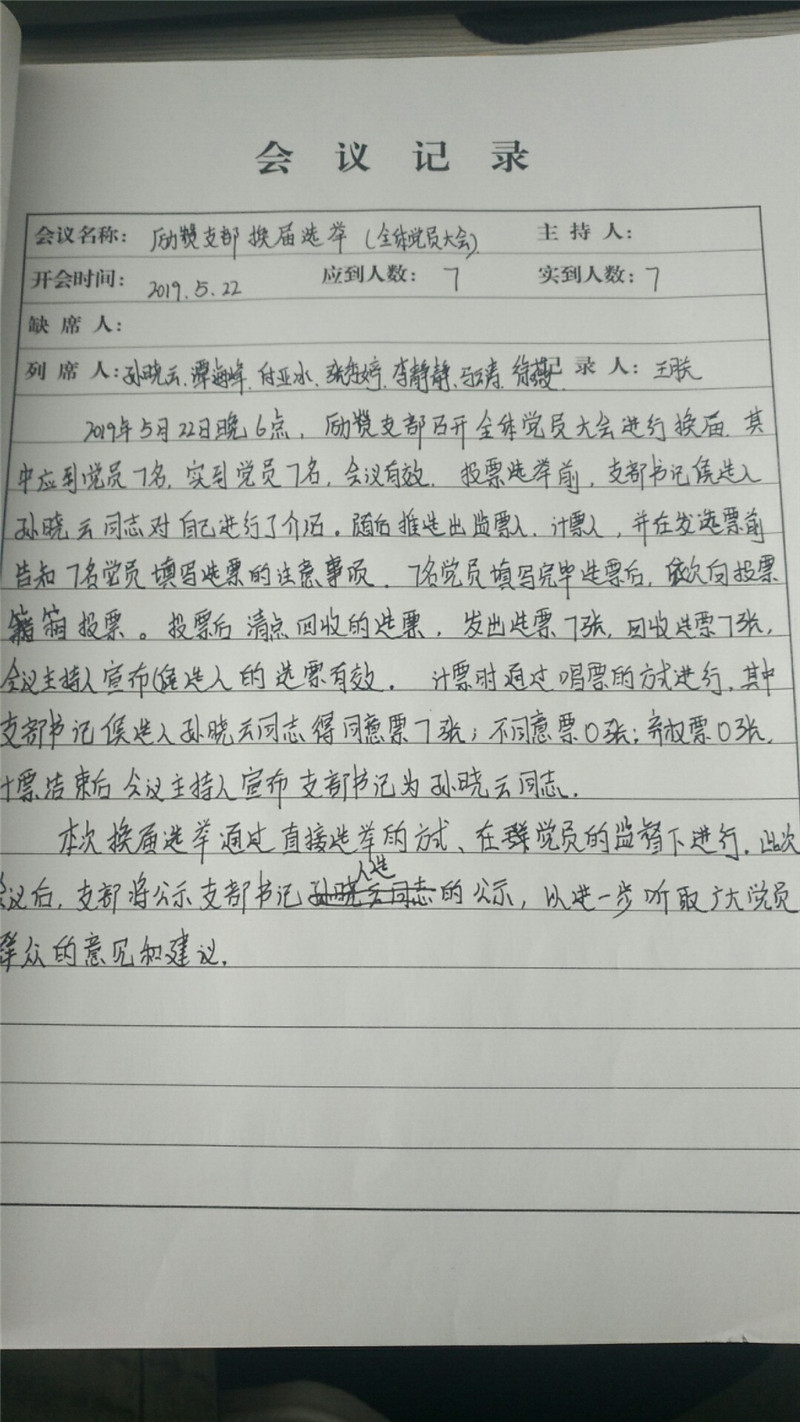 会议记录
会议名称：励赞支部换届选举（全体党员大会） 主持人：
开会时间：2019.5.22 应到人数：7 实到人数：7
缺席人：
列席人：孙晓云、谭海峰、付亚水、张 婷、李静静、马 涛、徐 记录人：王
2019年5月22日晚6点，励赞支部召开全体党员大会进行换届．其
中应到党员7名，实到党员7名，会议有效．投票选举前，支部书记候选人
孙晓云同志对自己进行了介绍。随后推选出监票人、计票人，并在发选票前
告知7名党员填写选票的注意事项．7名党员填写完毕选票后，依次向投票
箱投票。投票后清点回收的选票，发出选票7张，回收选票7张，
会议主持人宣布候选人的选票有效．计票时通过唱票的方式进行，其中
支部书记候选人孙晓云同志得同意票7张；不同意票0张；弃权票0张，
计票结束后会议主持人宣布支部书记为孙晓云同志．
本次换届选举通过直接选举的方式、在群党员的监督下进行．此次
会议后，支部将公示支部书记人选的公示，以进一步听取广大党员
群众的意见和建议．